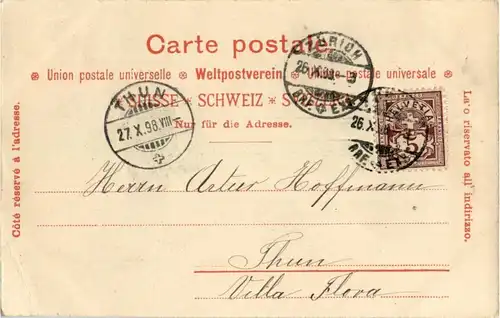 Carte postale.
Union postale universelle Weltpostverein. Unione postale universale
SUISSE * SCHWEIZ * S
Nur für die Adresse.
Côté réservé à l'adresse.
La'o riservato all' indirizzo.
THUN
27.X.98.VIII
ZÜRICH
26.X.98
BRF. EXP.
26.X
HELVETIA
5
Herrn Artur Hoffmann
Thun
Villa Flora